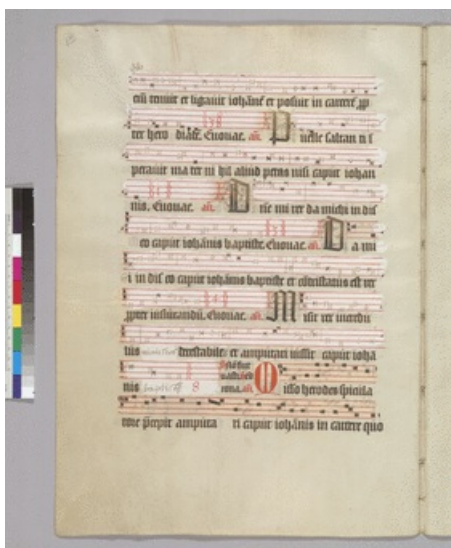 eim tenuit et ligauit iohānē et posuit in carcerē ꝓp
ter hero diadē. Euouae. añ. Puelle saltan ti i
perauit ma ter ni hil aliud petas nisi caput iohan
nis. Euouae. añ. D ne mi rex da michi in dis
co caput iohānis baptiste. Euouae. añ. D a mi
i in dis co caput iohānis baptiste et cōtristatus est rex
ꝓpter iusiurandū. Euouae. añ. M isit rex incredu
lus detestabiles et amputari iussit caput ioha
nis 8 rona. añ. M isso herodes spicula
tore p̄cepit amputa ri caput iohānis in carcere quo